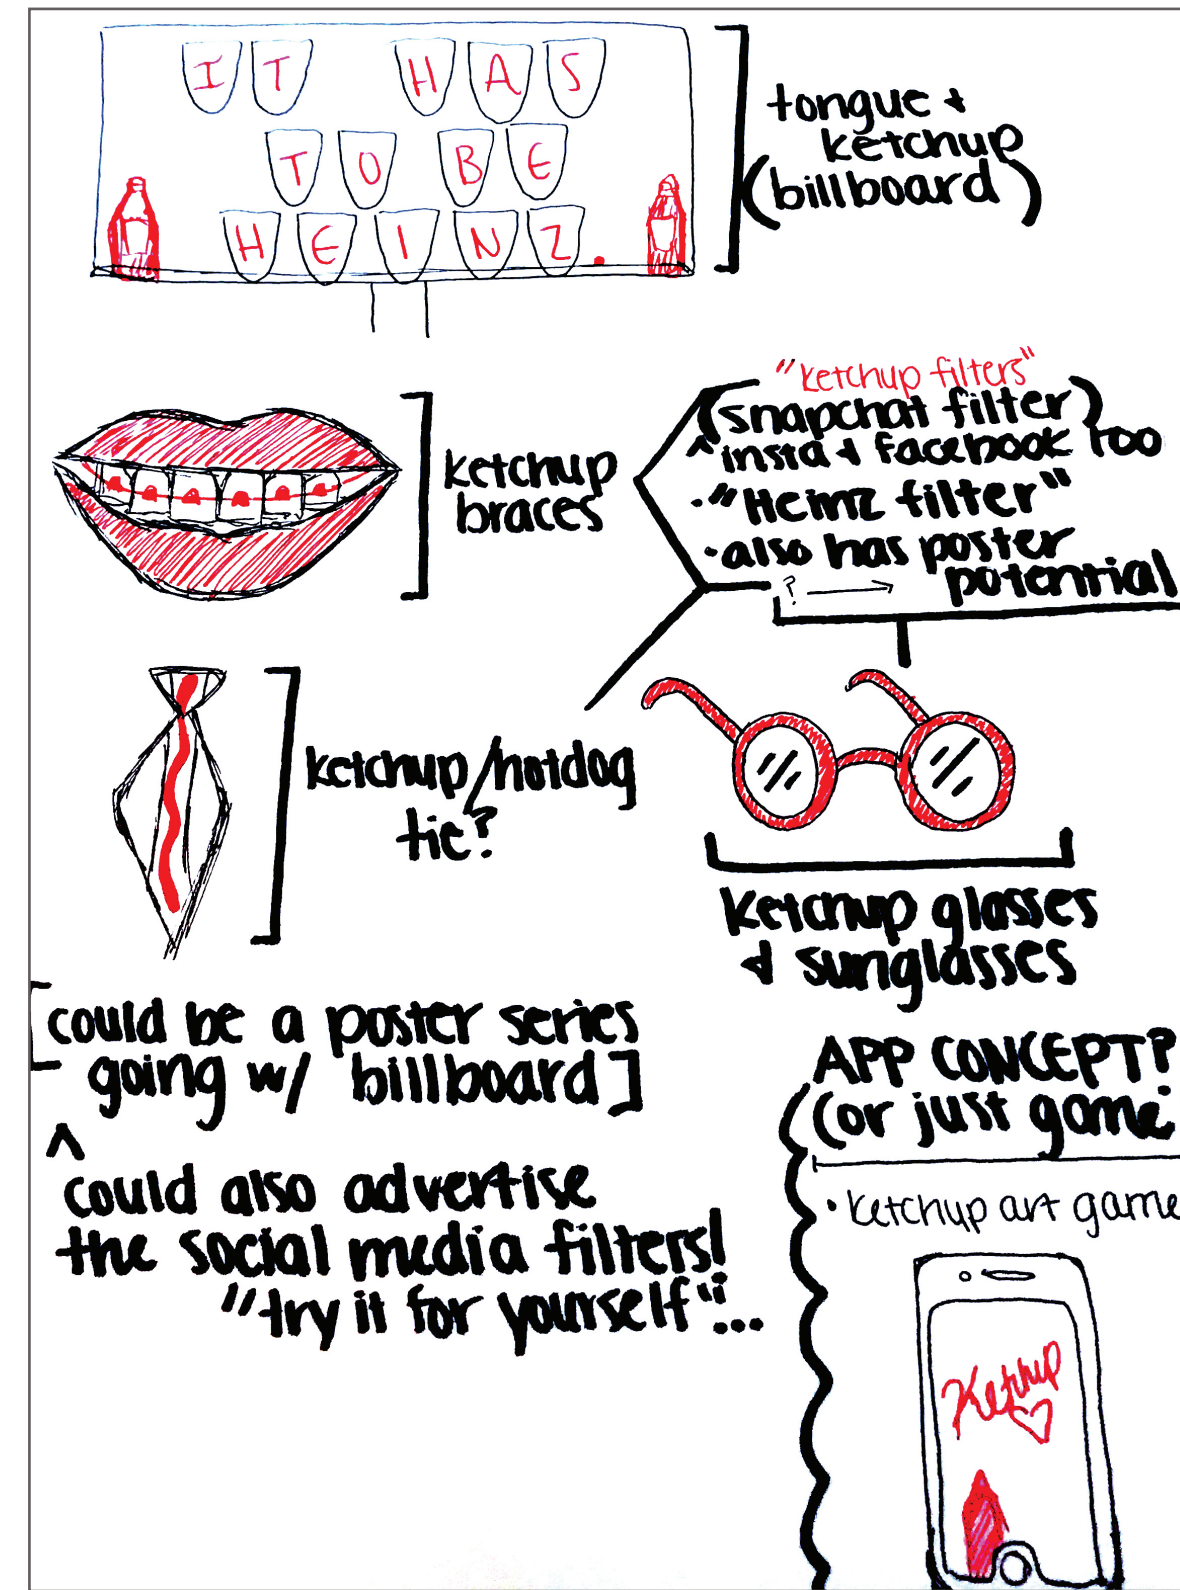 IT HAS
TO BE
HEINZ.
tongue +
ketchup
(billboard)
ketchup
braces
"ketchup filters"
(snapchat filter)
^ insta + facebook too
• "Heinz filter"
• also has poster
? → potential
ketchup/hotdog
tie?
ketchup glasses
+ sunglasses
[could be a poster series
going w/ billboard]
^
could also advertise
the social media filters!
"try it for yourself"...
APP CONCEPT?
(or just game
• ketchup art game
Ketchup